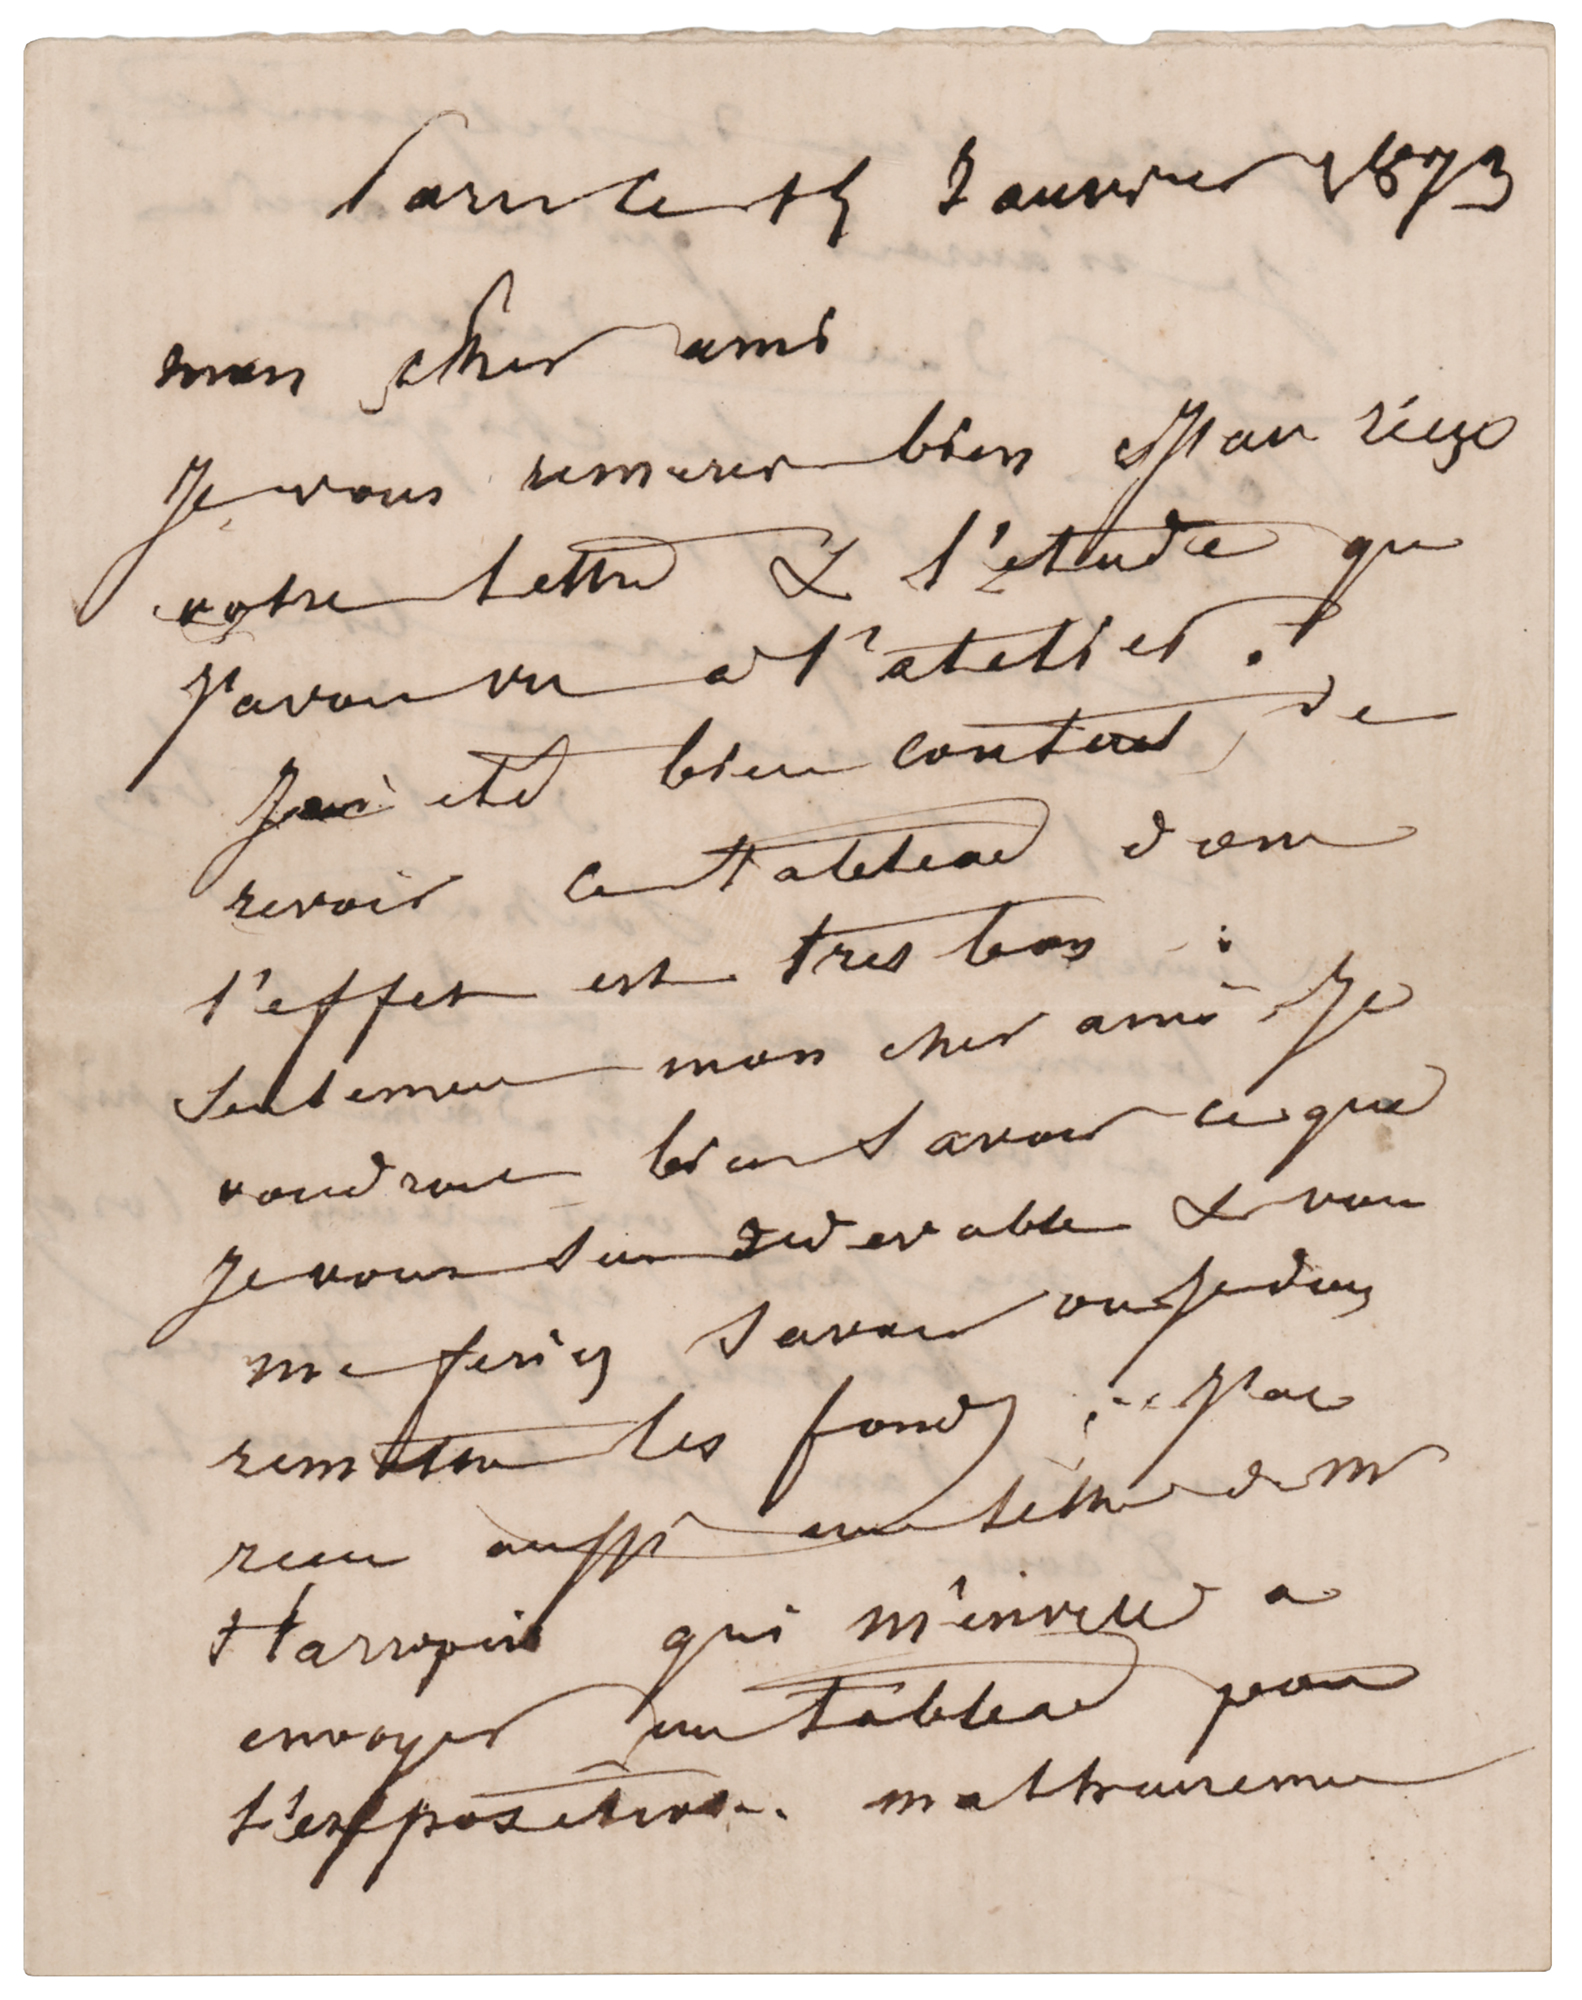 Paris le 15 Janvier 1873
mon cher ami
Je vous remercie bien J'ai reçu
votre lettre & l'etude que
J'avais vu a l'atelier.
J'ai eté bien content de
revoir ce tableau dont
l'effet est tres bon
Seulement mon cher ami Je
voudrais bien savoir ce que
Je vous suis redevable & vous
me feriez savoir ou Je dois
remettre les fonds. J'ai
recu aussi une lettre de Mr
qui m'invite a
envoyer un tableau pour
l'exposition. malheureusement